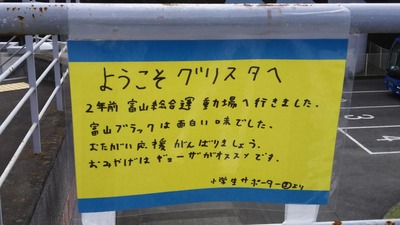 ようこそ グリスタへ
2年前 富山総合運動場へ行きました。
富山ブラックは面白い味でした。
おたがい応援がんばりましょう。
おみやげはギョーザがオススメです。
小学生サポーターより
2
3
4